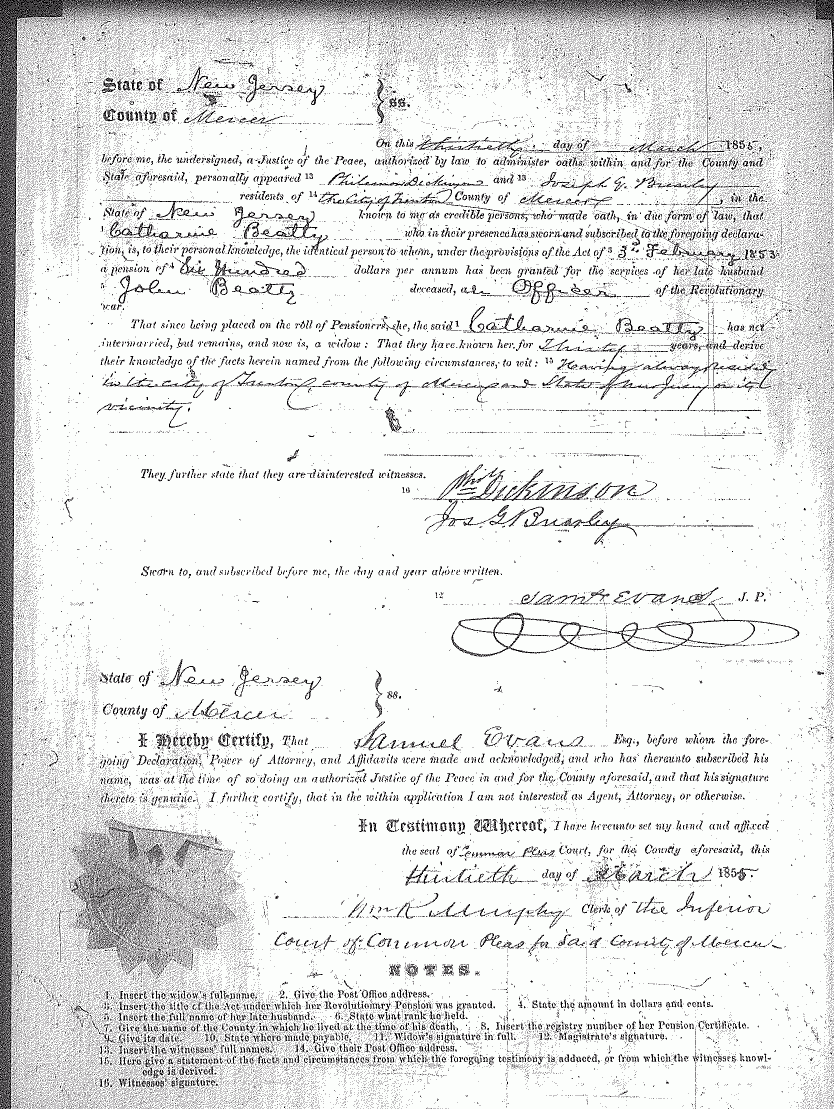 State of New Jersey
County of Mercer } ss.
On this thirtieth day of March 1855,
before me, the undersigned, a Justice of the Peace, authorized by law to administer oaths within and for the County and
State aforesaid, personally appeared 13 Philemon Dickinson and 13 Joseph G. Brearley
residents of 14 the City of Trenton County of Mercer, in the
State of New Jersey known to me as credible persons, who made oath, in due form of law, that
Catharine Beatty who in their presence has sworn and subscribed to the foregoing declara-
tion, is, to their personal knowledge, the identical person to whom, under the provisions of the Act of 3 3d February 1853
a pension of 4 Six Hundred dollars per annum has been granted for the services of her late husband
5 John Beatty deceased, an Officer of the Revolutionary
war.
That since being placed on the roll of Pensioners, she, the said 1 Catharine Beatty has not
intermarried, but remains, and now is, a widow: That they have known her for Thirty years, and derive
their knowledge of the facts herein named from the following circumstances, to wit: 15 Having always resided
in the city of Trenton, county of Mercer and State of New Jersey or its
vicinity.
They further state that they are disinterested witnesses.
16 Phil Dickinson
Jos G Brearley
Sworn to, and subscribed before me, the day and year above written.
12 Saml Evans J. P.
State of New Jersey
County of Mercer } ss.
I Hereby Certify, That Samuel Evans Esq., before whom the fore-
going Declaration, Power of Attorney, and Affidavits were made and acknowledged, and who has thereunto subscribed his
name, was at the time of so doing an authorized Justice of the Peace in and for the County aforesaid, and that his signature
thereto is genuine. I further certify, that in the within application I am not interested as Agent, Attorney, or otherwise.
In Testimony Whereof, I have hereunto set my hand and affixed
the seal of Common Pleas Court, for the County aforesaid, this
thirtieth day of March 1855.
Wm R Murphy Clerk of the Inferior
Court of Common Pleas for said County of Mercer
NOTES.
1. Insert the widow's full name. 2. Give the Post Office address.
3. Insert the title of the Act under which her Revolutionary Pension was granted. 4. State the amount in dollars and cents.
5. Insert the full name of her late husband. 6. State what rank he held.
7. Give the name of the County in which he lived at the time of his death. 8. Insert the registry number of her Pension Certificate.
9. Give its date. 10. State where made payable. 11. Widow's signature in full. 12. Magistrate's signature.
13. Insert the witnesses' full names. 14. Give their Post Office address.
15. Here give a statement of the facts and circumstances from which the foregoing testimony is adduced, or from which the witnesses knowl-
edge is derived.
16. Witnesses' signature.